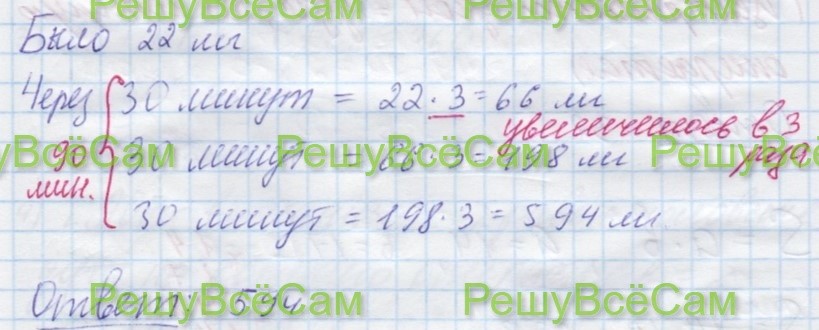 РешуВсёСам РешуВсёСам
Было 22 мг
Через 30 минут = 22·3=66 мг
увеличилось в 3 раза
90 мин.
30 минут = 66·3=198 мг
РешуВсёСам РешуВсёСам РешуВсёСам
30 минут = 198·3=594 мг
Ответ: 594
РешуВсёСам РешуВсёСам